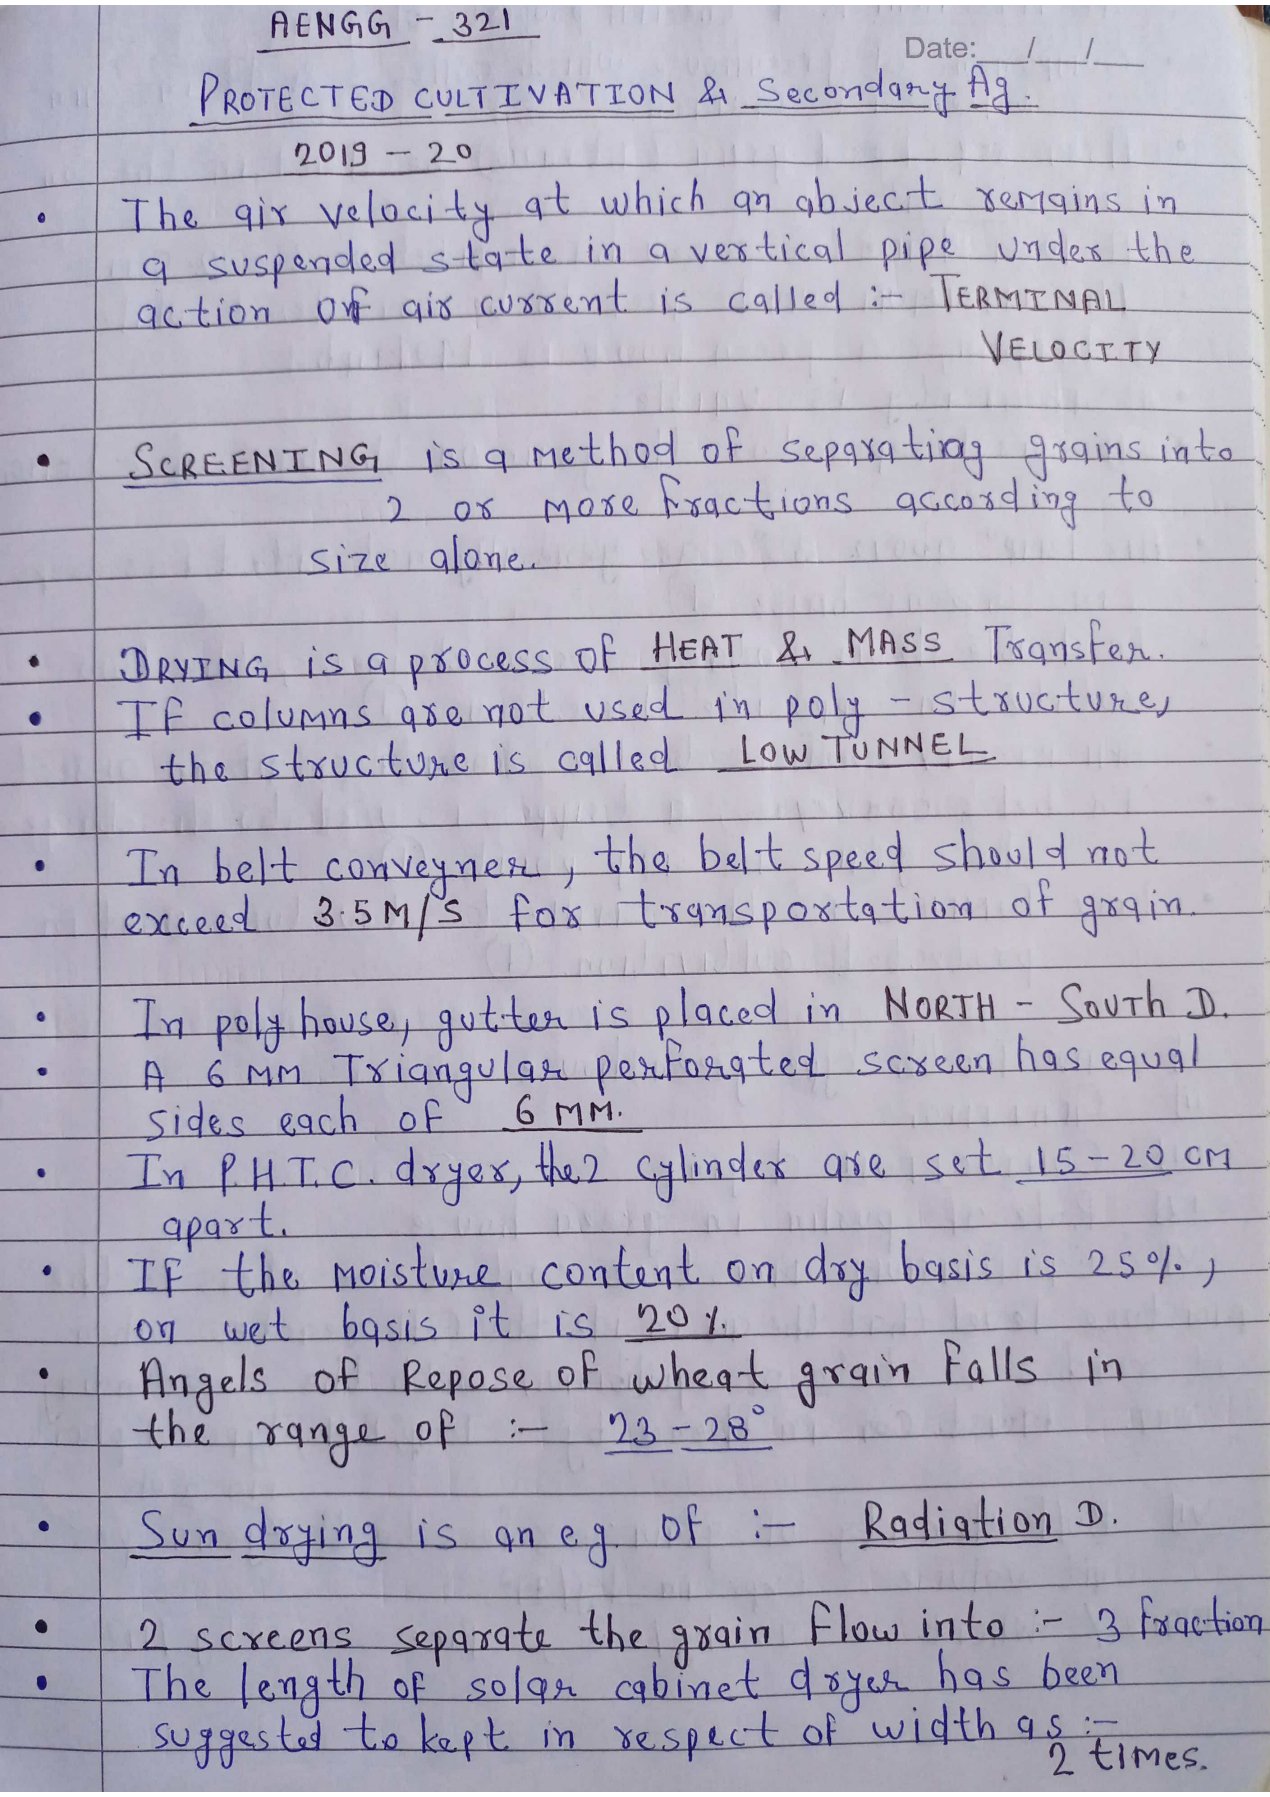 AENGG - 321
Date: __/__/__
PROTECTED CULTIVATION & Secondary Ag.
2019 - 20
• The air velocity at which an object remains in
a suspended state in a vertical pipe under the
action of air current is called :- TERMINAL
VELOCITY
• SCREENING is a method of separating grains into
2 or more fractions according to
size alone.
• DRYING is a process of HEAT & MASS Transfer.
• If columns are not used in poly - structure,
the structure is called LOW TUNNEL
• In belt conveyner, the belt speed should not
exceed 3.5 M/S for transportation of grain.
• In poly house, gutter is placed in NORTH - SOUTH D.
• A 6 MM Triangular perforated screen has equal
sides each of 6 MM.
• In P.H.T.C. dryer, the 2 cylinder are set 15-20 CM
apart.
• If the Moisture content on dry basis is 25%,
on wet basis it is 20%.
• Angels of Repose of wheat grain falls in
the range of :- 23-28°
• Sun drying is an e.g. of :- Radiation D.
• 2 screens separate the grain flow into :- 3 fraction
• The length of solar cabinet dryer has been
suggested to kept in respect of width as :-
2 times.